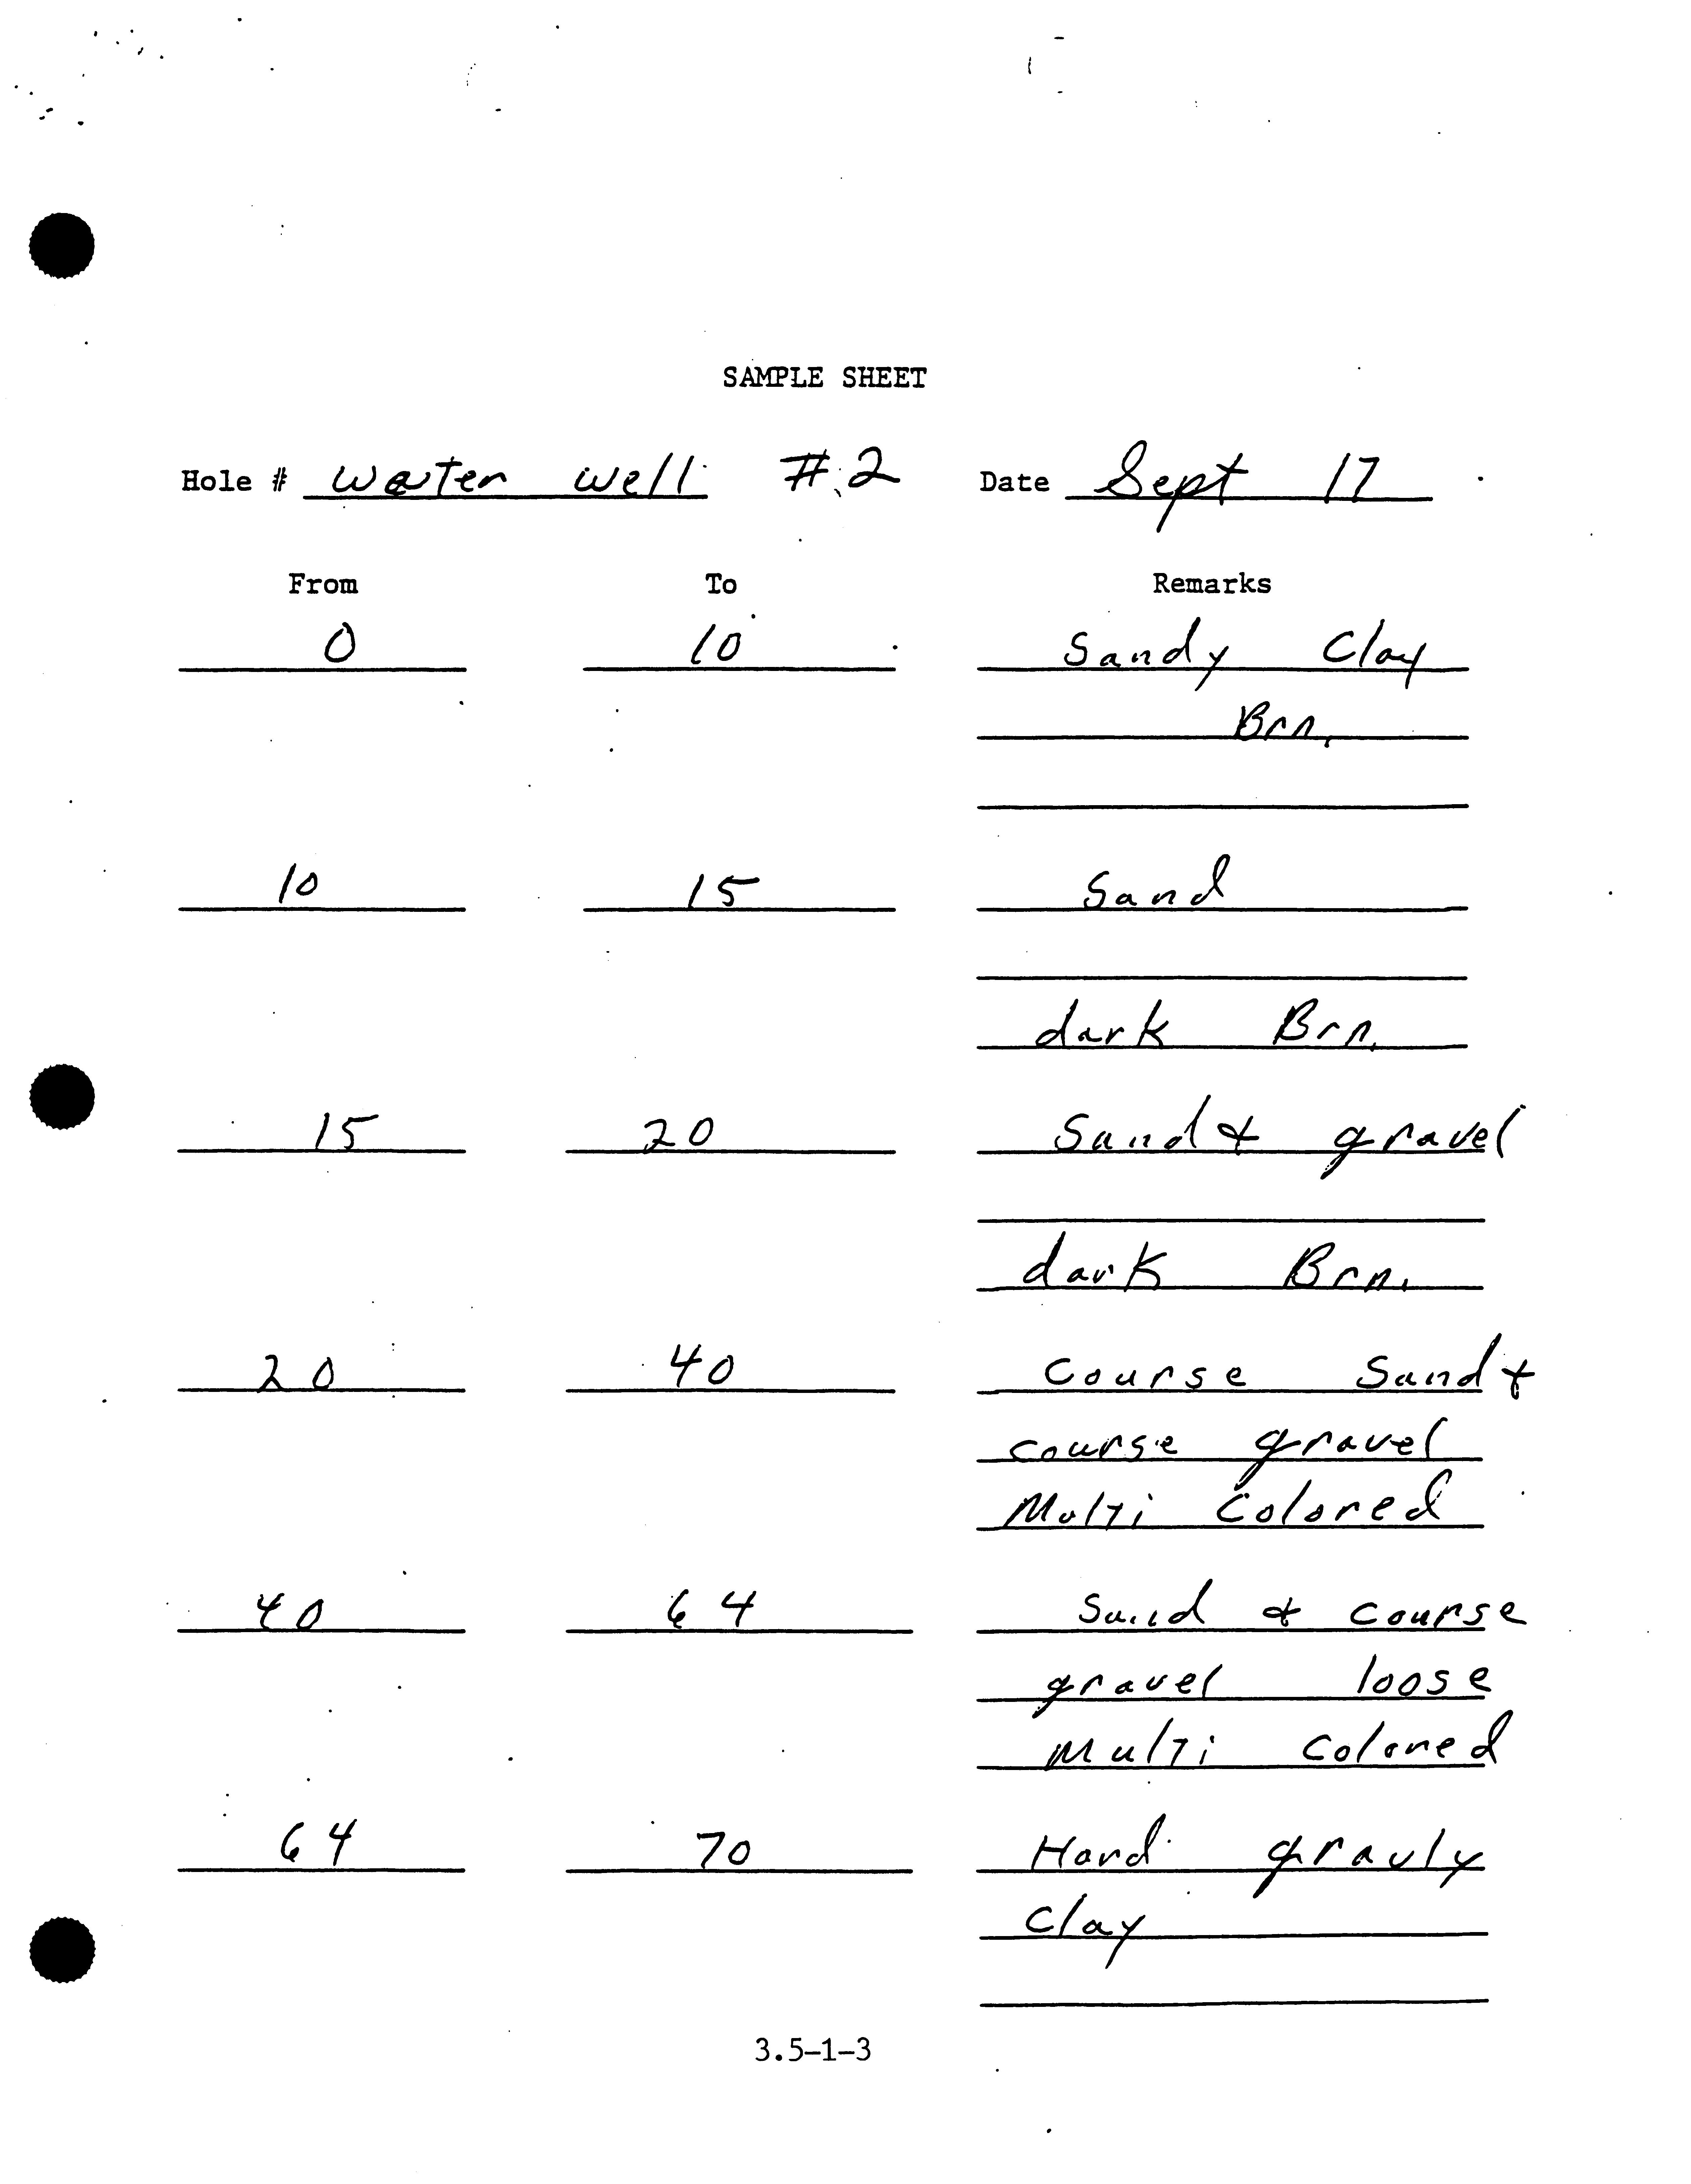 SAMPLE SHEET
Hole # water well #2 Date Sept 17
From To Remarks
0 10 Sandy Clay
Brn.
10 15 Sand
dark Brn.
15 20 Sand & gravel
dark Brn.
20 40 Course Sand &
course gravel
Multi Colored
40 64 Sand & course
gravel loose
Multi Colored
64 70 Hard gravly
Clay
3.5-1-3